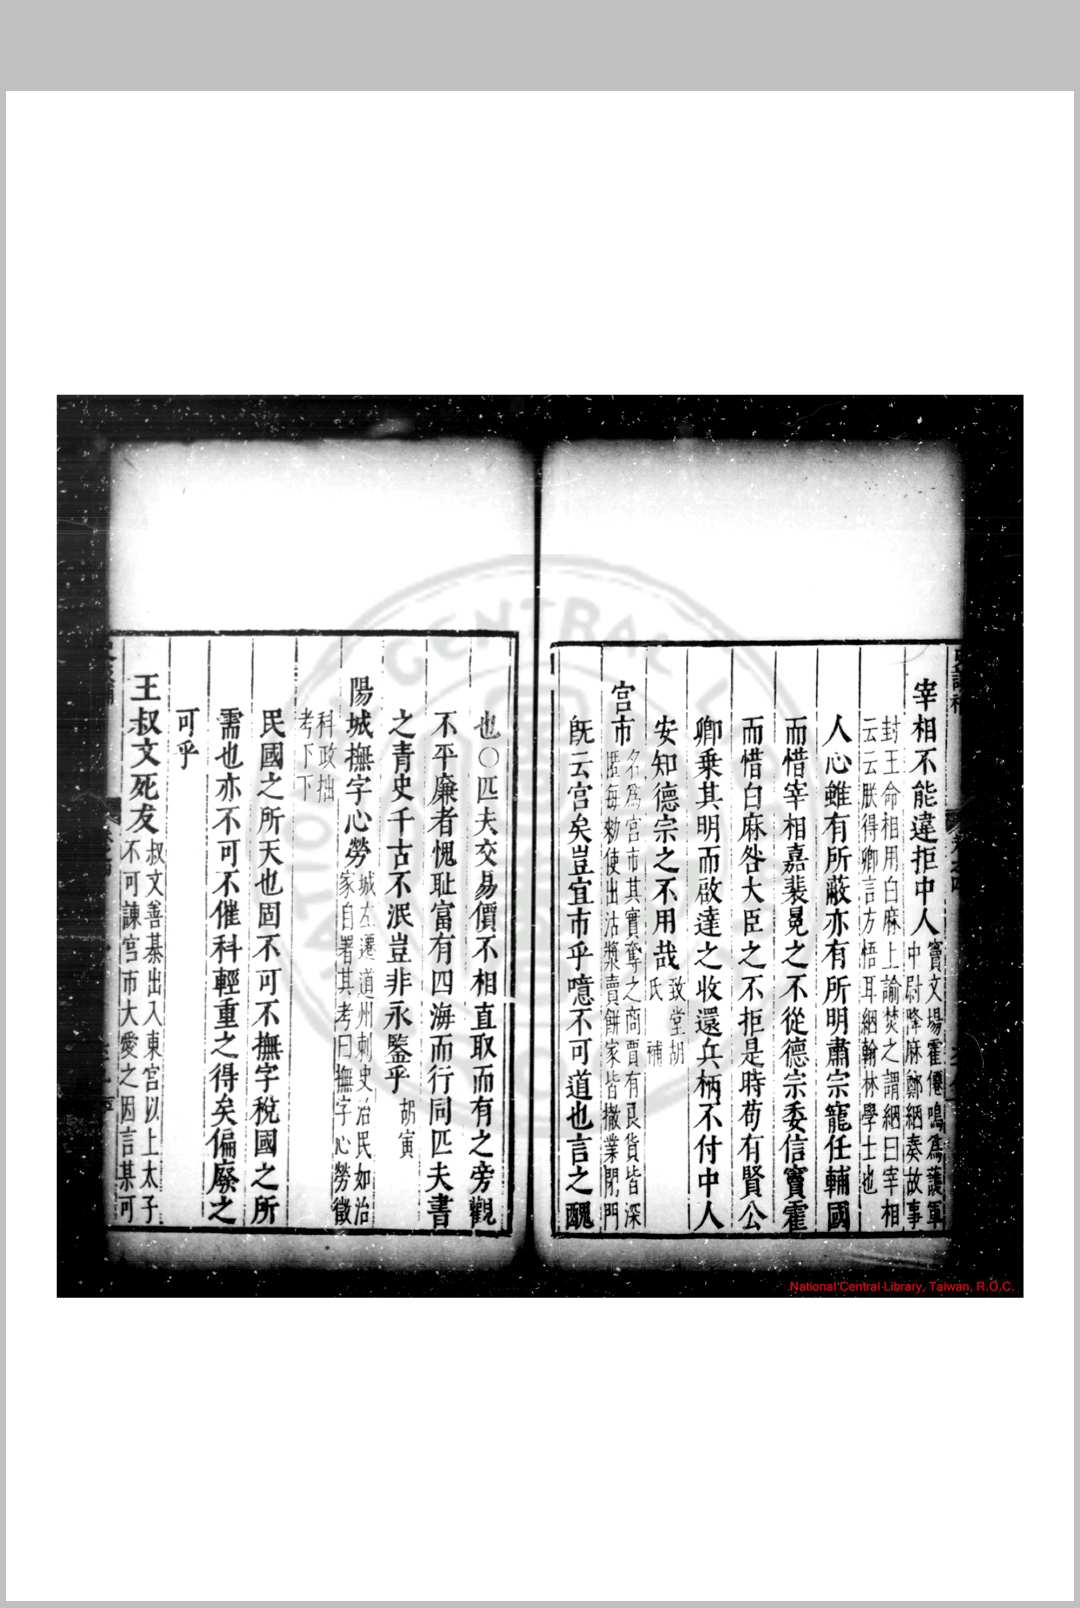 宰相不能違拒中人竇文場霍僊鳴爲護軍
中尉降麻鄭絪奏故事
封王命相用白麻上諭焚之謂絪曰宰相
云云朕得卿言方悟耳絪翰林學士也
人心雖有所蔽亦有所明肅宗寵任輔國
而惜宰相嘉裴冕之不從德宗委信竇霍
而惜白麻咎大臣之不拒是時苟有賢公
卿乗其明而啟達之收還兵柄不付中人
安知德宗之不用哉致堂胡
氏 補
宮市名爲宮市其實奪之商賈有良貨皆深
匿每勑使出沽漿賣餅家皆撤業閉門
旣云宮矣豈宜市乎噫不可道也言之醜
也○匹夫交易價不相直取而有之旁觀
不平廉者愧耻富有四海而行同匹夫書
之青史千古不泯豈非永鑒乎胡寅
陽城撫字心勞城左遷道州刺史治民如治
家自署其考曰撫字心勞徵
科政拙
考下下
民國之所天也固不可不撫字稅國之所
需也亦不可不催科輕重之得矣偏廢之
可乎
王叔文死友叔文善棊出入東宮以上太子
不可諫宮市大愛之因言某可
National Central Library, Taiwan, R.O.C.